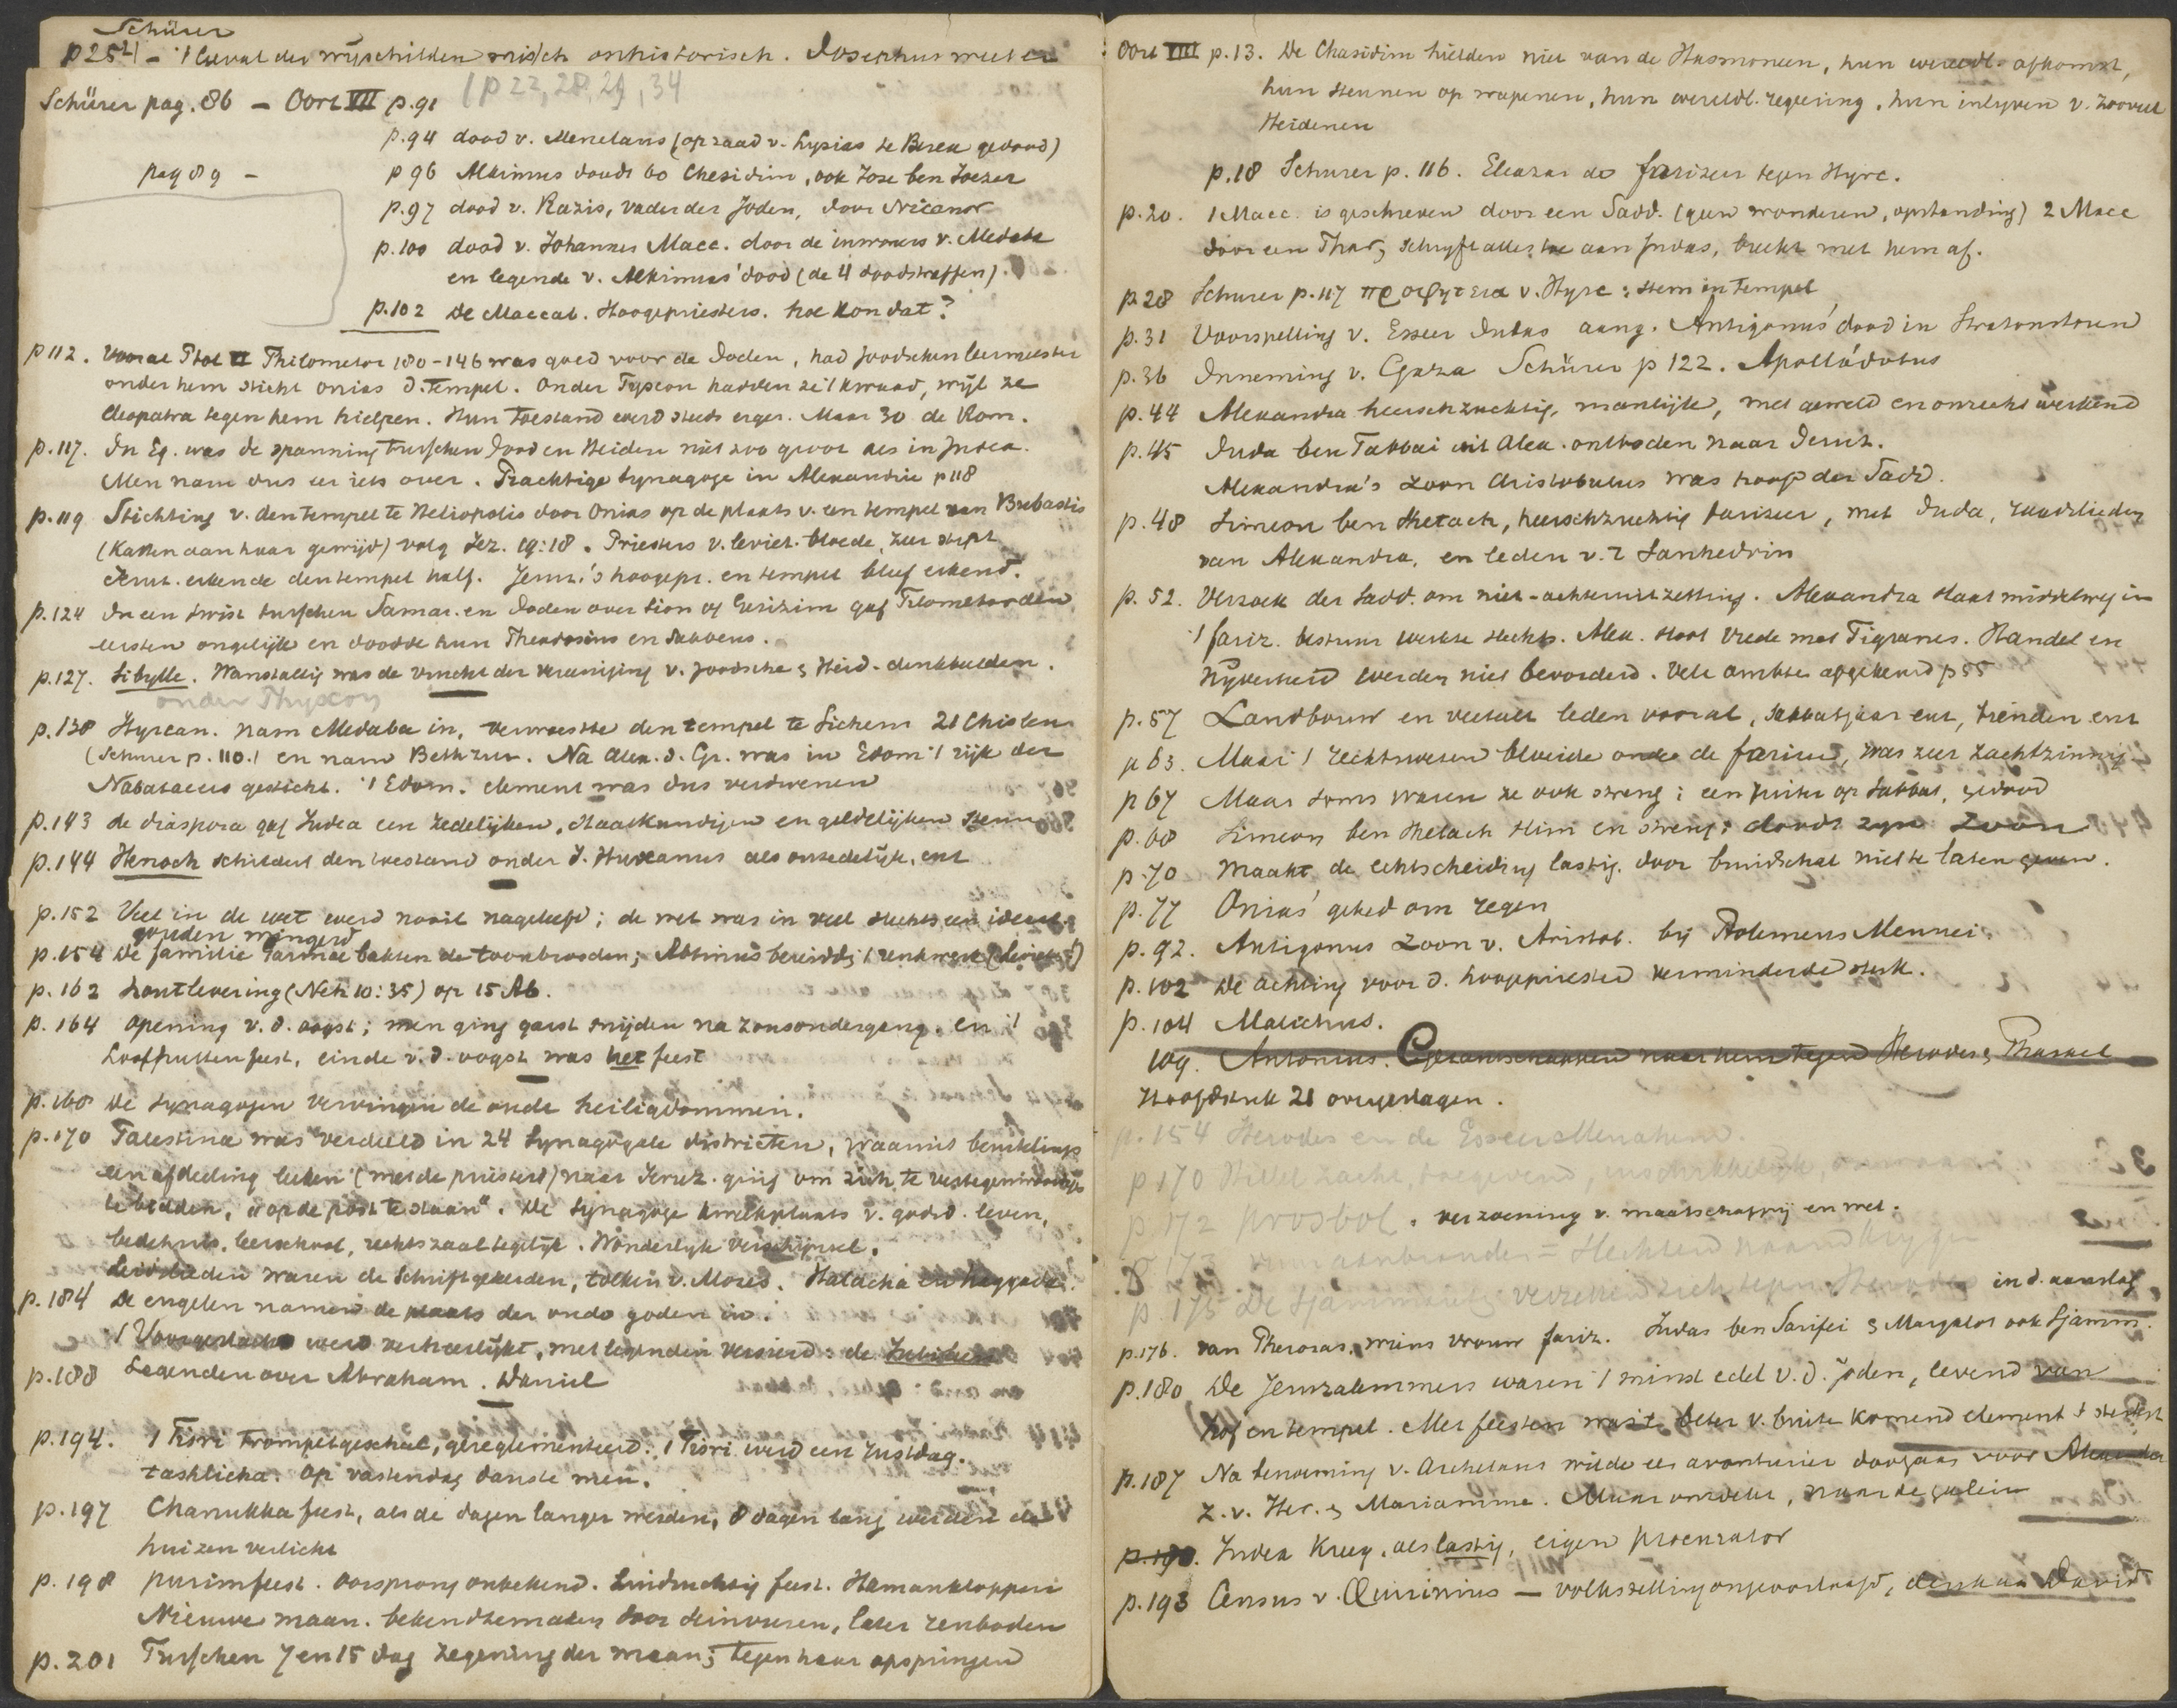 Schürer
p 254 – 't Geval der wijschilden misch onhistorisch. Josephus weet er
Schürer pag. 86 – Oort VII p. 91 / p 22, 28, 29, 34
p. 94 dood v. Menelaus (op raad v. Lysias te Berea gedood)
pag 89 – p 96 Alkimus doodt 60 Chesidim, ook Jose ben Joezer
p. 97 dood v. Razis, vader der Joden, door Nicanor
p. 100 dood v. Johannes Macc. door de inwoners v. Medaba
en legende v. Alkimus' dood (de 4 doodstraffen).
p. 102 de Maccab. Hoogepriesters. hoe kon dat?
p 112. Vooral Ptol VI Philometor 180-146 was goed voor de Joden, had Joodschen leermeester
onder hem sticht Onias d. tempel. Onder Fyscon hadden ze 't kwaad, wijl ze
Cleopatra tegen hem hielpen. Hun toestand werd steeds erger. Maar 30 de Rom.
p. 117. In Eg. was de spanning tusschen Jood en Heiden niet zoo groot als in Judea.
Men nam dus eer iets over. Prachtige Synagoge in Alexandrie p 118
p. 119 Stichting v. den tempel te Heliopolis door Onias op de plaats v. een tempel van Bubastis
(Katten aan haar gewijd) volg Jez. 19:18. Priesters v. leviet. bloede, zeer stipt
Jeruz. erkende den tempel half. Jeruz.'s hoogepr. en tempel bleef erkend.
p. 124 In een twist tusschen Samar. en Joden over Sion of Gerizim gaf Filometor den
eersten ongelijk en doodde hun Theodosius en Sabbeus.
p. 127. Sibylle. Wanstaltig was de vrucht der vereeniging v. Joodsche & Heid. denkbeelden.
onder Physcon
p. 138 Hyrcan. nam Medaba in, verwoestte den tempel te Sichem 21 Chisleu
(Schurer p. 110.) en nam Bethzur. Na Alex. d. Gr. was in Edom 't rijk der
Nabataeers gesticht. 't Edom. element was dus verdwenen
p. 143 de diaspora gaf Judea een zedelijken, staatkundigen en geldelijken steun
p. 144 Henoch schildert den toestand onder J. Hyrcanus als onzedelijk, enz
p. 152 Veel in de wet werd nooit nageleefd; de wet was in veel slechts een ideaal.
gouden wingerd
p. 154 de familie Garmoe bakten de toonbrooden; Abtinus bereidde 't reukwerk (Leviet!)
p. 162 houtlevering (Neh 10:35) op 15 Ab.
p. 164 opening v. d. oogst; men ging gerst snijden na zonsondergang. en 't
Loofhuttenfeest, einde v. d. oogst was het feest
p. 168 de Synagogen vervingen de oude heiligdommen.
p. 170 Palestina was verdeeld in 24 Synagogale districten, waaruit beurtelings
een afdeeling leeken (met de priesters) naar Jeruz. ging om zich te vertegenwoordigen
te bidden, "op de post te staan". De Synagoge kweekplaats v. godsd. leven,
bedehuis, leerschool, rechtszaal tegelijk. Wonderlijk verschijnsel.
Leidslieden waren de Schriftgeleerden, tolken v. Mozes. Halacha en haggada.
p. 184 De engelen namen de plaats der oude goden in.
't Voorgeslacht werd verheerlijkt, met legenden versierd: de Jubileen
p. 188 Legenden over Abraham. Daniel
p. 194. 1 Tisri trompetgeschal, gereglementeerd. 1 Tisri werd een rustdag.
taschlicha. Op vastendag danste men.
p. 197 Chanukka feest, als de dagen langer werden, 8 dagen lang werden de
huizen verlicht
p. 198 purimfeest. oorsprong onbekend. Luidruchtig feest. Hamankloppen
Nieuwe maan. bekendtemaken door seinvuren, later zenboden
p. 201 Tusschen 7 en 15 dag zegening der maan; tegen haar opspringen
Oort VIII p. 13. De Chasidim hielden niet van de Hasmoneen, hun wereldl. afkomst,
hun steunen op wapenen, hun wereldl. regeering, hun inlyven v. zooveel
Heidenen
p. 18 Schurer p. 116. Eleazar de farizeer tegen Hyrc.
p. 20. 1 Macc. is geschreven door een Sadd. (geen wonderen, opstanding) 2 Macc
door een Phar, schryft alles toe aan Judas, breekt met hem af.
p. 28 Schurer p. 117 προφητεια v. Hyrc: stem in tempel
p. 31 Voorspelling v. Esseer Judas aang. Antigonus' dood in Stratonstoren
p. 36 Inneming v. Gaza Schürer p 122. Apollodotus
p. 44 Alexandra heerschzuchtig, manlijk, met geweld en onrecht werkend
p. 45 Juda ben Tabbai uit Alex. ontboden naar Jeruz.
Alexandra's zoon Aristobulus was hoofd der Sadd.
p. 48 Simeon ben Shetach, heerschzuchtig farizeer, met Juda, raadslieden
van Alexandra, en leden v. 't Sanhedrin
p. 52. Verzoek der Sadd. om niet-achteruitzetting. Alexandra slaat middelweg in
't fariz. bestuur werkte slecht. Alex. sloot vrede met Tigranes. Handel en
Nijverheid werden niet bevorderd. Vele ambten afgekeurd p 55
p. 57 Landbouw en veeteelt leden vooral, sabbatjaar enz, tienden enz
p 63. Maar 't rechtswezen bloeide onder de farizeen, was zeer zachtzinnig
p 67 Maar soms waren ze ook streng: een ruiter op Sabbat, gedood
p. 68 Simeon ben Shetach slim en streng: doodt zijn Zoon
p. 70 maakt de echtscheiding lastig. door bruidschat niet te laten geven.
p. 77 Onias' gebed om regen
p. 92. Antigonus zoon v. Aristob. bij Ptolemeus Mennei
p. 102 de achting voor d. hoogepriester verminderde sterk.
p. 104 Malichus.
109. Antonius. Gezantschappen naar hem tegen Herodes & Phasael
Hoofdstuk 21 overgeslagen.
p. 154 Herodes en de Esseer Menahem.
p 170 Hillel zacht, toegevend, inschikkelijk,
p 172 prosbol. verzoening v. maatschappij en wet.
p 173 aanbranden = slechten naam krygen
p. 175 De Sjammaieten verzetten zich tegen Herodes in d. aanslag
p. 176. van Pheroras, wiens vrouw fariz. Judas ben Sarifei & Margalot ook Sjamm.
p. 180 De Jeruzalemmers waren 't minst edel v. d. joden, levend van
hof en tempel. Met feesten was 't beter v. buiten komend element 't sterkst
p. 187 Na benoeming v. Archelaus wilde een avonturier doorgaan voor Alexander
z. v. Her. & Mariamme. Maar ontdekt, naar de galein
p. 190. Judea kreeg, als lastig, eigen procurator
p. 193 Census v. Quirinius – volkstelling ongeoorloofd, denk aan David